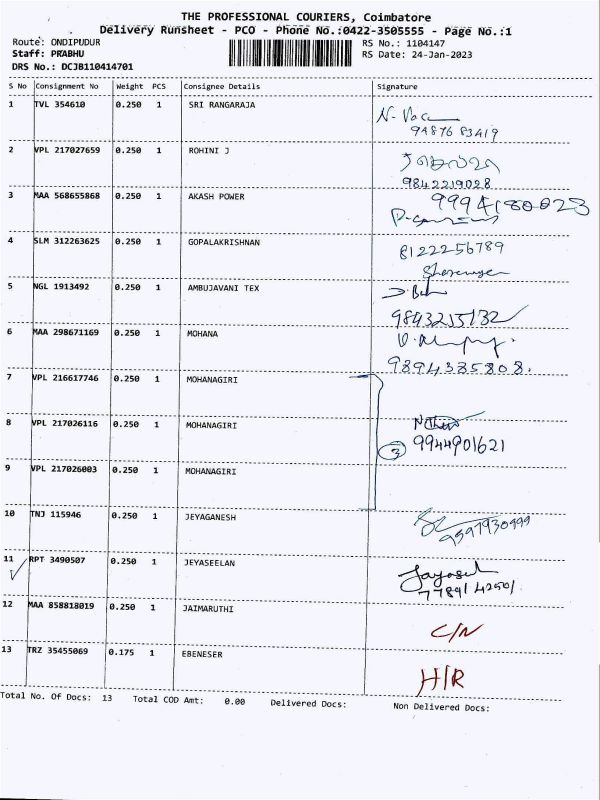 THE PROFESSIONAL COURIERS, Coimbatore
Delivery Runsheet - PCO - Phone No.:0422-3505555 - Page No.:1
Route: ONDIPUDUR RS No.: 1104147
Staff: PRABHU RS Date: 24-Jan-2023
DRS No.: DCJB110414701
S No Consignment No Weight PCS Consignee Details Signature
1 TVL 354610 0.250 1 SRI RANGARAJA
94876 83419
2 VPL 217027659 0.250 1 ROHINI J
9842219028
3 MAA 568655868 0.250 1 AKASH POWER
9994180023
4 SLM 312263625 0.250 1 GOPALAKRISHNAN
8122256789
5 NGL 1913492 0.250 1 AMBUJAVANI TEX
9843215132
6 MAA 298671169 0.250 1 MOHANA
9894335808.
7 VPL 216617746 0.250 1 MOHANAGIRI
8 VPL 217026116 0.250 1 MOHANAGIRI
3 9944901621
9 VPL 217026003 0.250 1 MOHANAGIRI
10 TNJ 115946 0.250 1 JEYAGANESH
11 RPT 3490507 0.250 1 JEYASEELAN
12 MAA 858818019 0.250 1 JAIMARUTHI
C/N
13 TRZ 35455069 0.175 1 EBENESER
H/R
Total No. Of Docs: 13 Total COD Amt: 0.00 Delivered Docs: Non Delivered Docs: